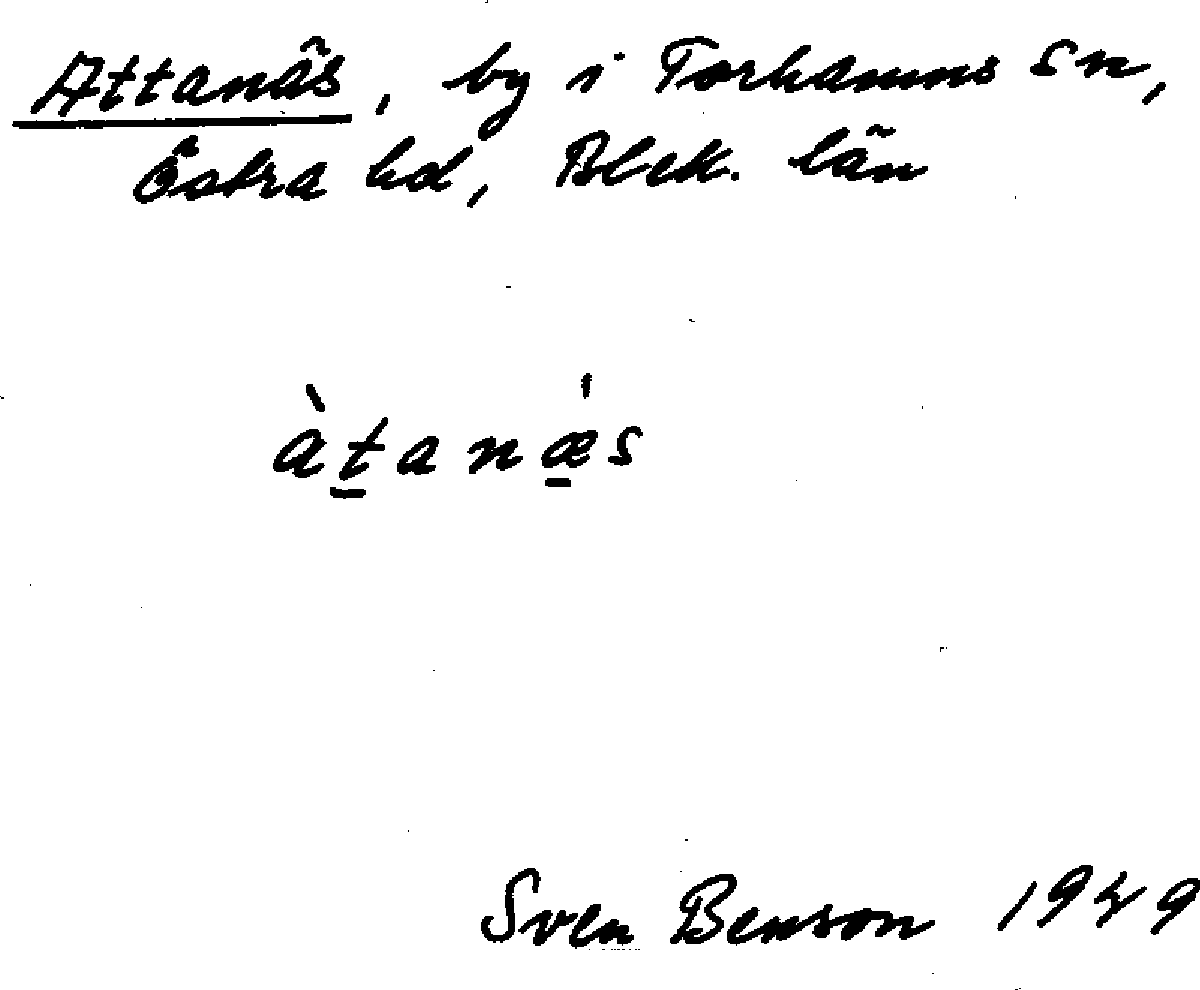 Attanäs, by i Torhamns sn,
Östra hd, Blek. län
àt̲anǽ̲s
Sven Benson 1949